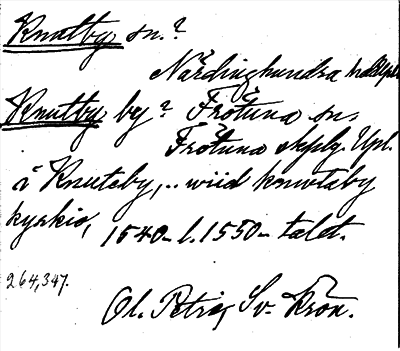 Knutby sn.?
Närdinghundra hd Upl.
Knutby by? Frötuna sn,
Frötuna skplg. Upl.
i Knuteby,.. wiid knwtaby
kyrkio, 1540- l. 1550-talet.
264,347.
Ol. Petri, Sv. Krön.